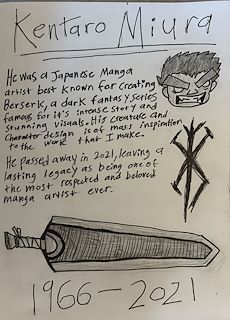 Kentaro Miura
He was a Japanese Manga
artist best known for creating
Berserk, a dark fantasy series
famous for it's intense story and
stunning visuals. His creature and
character design is of mass inspiration
to the work that I make.
He passed away in 2021, leaving a
lasting legacy as being one of
the most respected and beloved
manga artist ever.
1966-2021